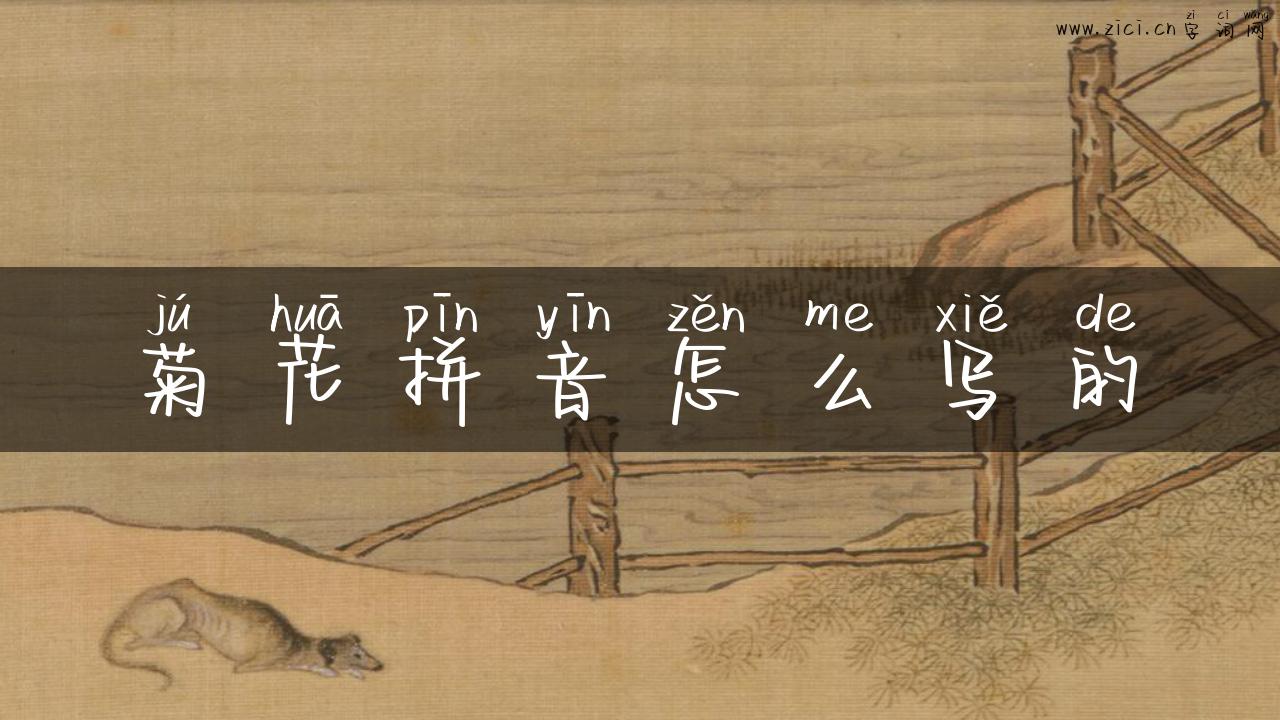 zì cí wang
www.zici.cn 字 词 网
jú huā pīn yīn zěn me xiě de
菊 花 拼 音 怎 么 写 的